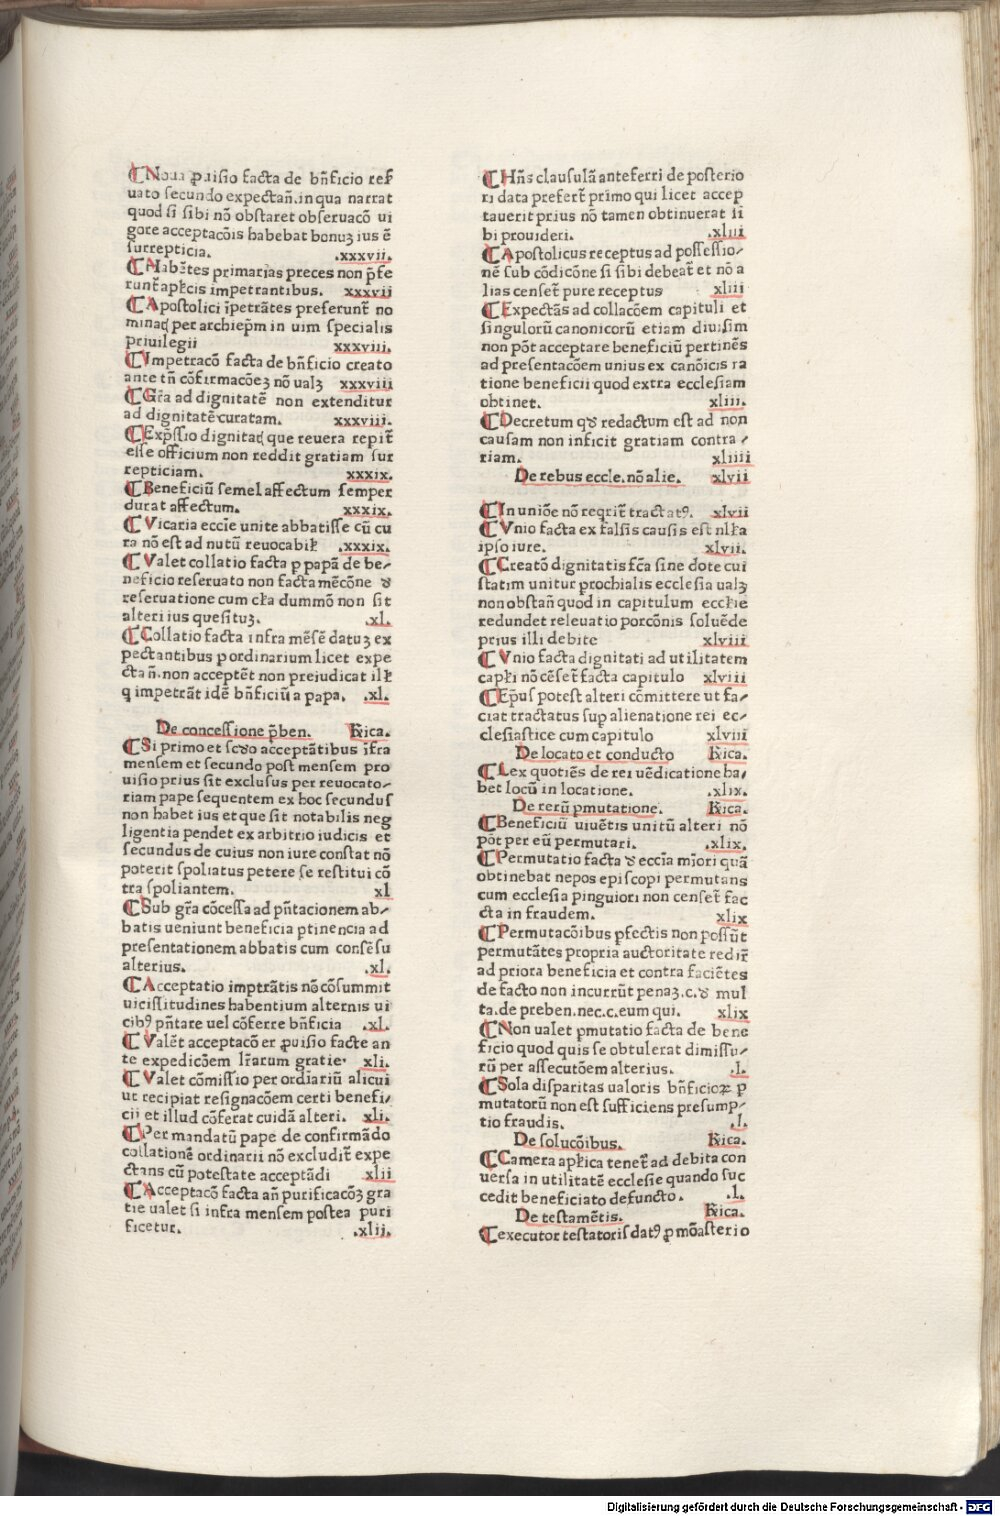 ¶ Noua ꝓuisio facta de bn̄ficio reẜ
uato secundo expectan̄.in qua narrat
quod si sibi nō obstaret obseruacō ui
gore acceptacōis habebat bonuʒ ius ē
surrepticia. .xxxvii.
¶ Habētes primarias preces non p̄fe
runt̄ apl̄cis impetrantibus. xxxvii
¶ Apostolici īpetrātes preferunt̄ no
minaꝭ per archiep̄m in uim specialis
priuilegii xxxviii.
¶ Impetracō facta de bn̄ficio creato
ante tn̄ cōfirmacōeʒ nō ualʒ xxxviii
¶ Gr̄a ad dignitatē non extenditur
ad dignitatē curatam. xxxviii.
¶ Exp̄ssio dignitaꝭ que reuera repit̄
esse officium non reddit gratiam sur
repticiam. xxxix.
¶ Beneficiū semel affectum semper
durat affectum. xxxix.
¶ Vicaria eccīe unite abbatisse cū cu
ra nō est ad nutū reuocabił .xxxix.
¶ Valet collatio facta ꝑ papā de be⸗
neficio reseruato non facta mēcōne ꝺ
reseruatione cum cła dummō non sit
alteri ius quesituʒ. .xl.
¶ Collatio facta infra mēsē datuʒ ex
pectantibus ꝑ ordinarium licet expe
ctan̄.non acceptēt non preiudicat ill̵
q impetrāt idē bn̄ficiū a papa. .xl.
De concessione p̄ben. Rica.
¶ Si primo et scꝺo acceptātibus īfra
mensem et secundo post mensem pro
uisio prius sit exclusus per reuocato⸗
riam pape sequentem ex hoc secundus
non habet ius et que sit notabilis neg
ligentia pendet ex arbitrio iudicis et
secundus de cuius non iure constat nō
poterit spoliatus petere se restitui cō
tra spoliantem. xl
¶ Sub gr̄a cōcessa ad pn̄tacionem ab⸗
batis ueniunt beneficia ptinencia ad
presentationem abbatis cum consēsu
alterius. .xl.
¶ Acceptatio imptrātis nō cōsummit
uicissitudines habentium alternis ui
cibꝰ pn̄tare uel cōferre bn̄ficia .xl.
¶ Valēt acceptacō er ꝓuisio facte an
te expedicōem lr̄arum gratie· xli.
¶ Valet cōmissio per ordīariū alicui
ut recipiat resignacōem certi benefi⸗
cii et illud cōferat cuidā alteri. xli.
¶ Per mandatū pape de confirmādo
collationē ordinarii nō excludit̄ expe
ctans cū potestate acceptādi xlii
¶ Acceptacō facta an̄ purificacōʒ gra
tie ualet si infra mensem postea puri
ficetur. .xlii.
¶ Hn̄s clausulā anteferri de posterio
ri data prefert̄ primo qui licet accep
tauerit prius nō tamen obtinuerat si
bi prouideri. .xliii
¶ Apostolicus receptus ad possessio⸗
nē sub cōdicōne si sibi debeat̄ et nō a
lias censet̄ pure receptus xliii
¶ Expectās ad collacōem capituli et
singulorū canonicorū etiam diuisim
non pōt acceptare beneficiū pertinēs
ad presentacōem unius ex canōicis ra
tione beneficii quod extra ecclesiam
obtinet. xliii.
¶ Decretum qꝺ redactum est ad non
causam non inficit gratiam contra⸗
riam. xliiii
De rebus eccle.nō alie. xlvii
¶ In uniōe nō reqrit̄ tractatꝰ. xlvii
¶ Vnio facta ex falsis causis est nłła
ipso iure. xlvii.
¶ Creatō dignitatis fcā sine dote cui
statim unitur prochialis ecclesia ualʒ
non obstan̄ quod in capitulum eccłie
redundet releuatio porcōnis soluēde
prius illi debite xlviii
¶ Vnio facta dignitati ad utilitatem
capłi nō cēset̄ facta capitulo xlviii
¶ Ep̄us potest alteri cōmittere ut fa⸗
ciat tractatus suꝑ alienatione rei ec⸗
clesiastice cum capitulo xlviii
De locato et conducto Rica.
¶ Lex quotiēs de rei uēdicatione ha⸗
bet locū in locatione. .xlix.
De rerū ꝑmutatione. Rica.
¶ Beneficiū uiuētis unitū alteri nō
pōt per eū permutari. .xlix.
¶ Permutatio facta ꝺ eccīa mīori quā
obtinebat nepos episcopi permutans
cum ecclesia pinguiori non censet̄ fac
cta in fraudem. xlix
¶ Permutacōibus ꝑfectis non possūt
permutātes propria auctoritate redir̄
ad priora beneficia et contra faciētes
de facto non incurrūt penaʒ.c.ꝺ mul
ta.de preben.nec.c.eum qui. xlix
¶ Non ualet ꝑmutatio facta de bene
ficio quod quis se obtulerat dimissu⸗
rū per assecutōem alterius. .l.
¶ Sola disparitas ualoris bn̄ficioꝝ ꝑ
mutatorū non est sufficiens presump⸗
tio fraudis. .l.
De solucōibus. Rica.
¶ Camera apłica tenet̄ ad debita con
uersa in utilitatē ecclesie quando suc
cedit beneficiato defuncto. .l.
De testamētis. Rica.
¶ executor testatoris datꝰ ꝓ mōasterio
Digitalisierung gefördert durch die Deutsche Forschungsgemeinschaft · DFG